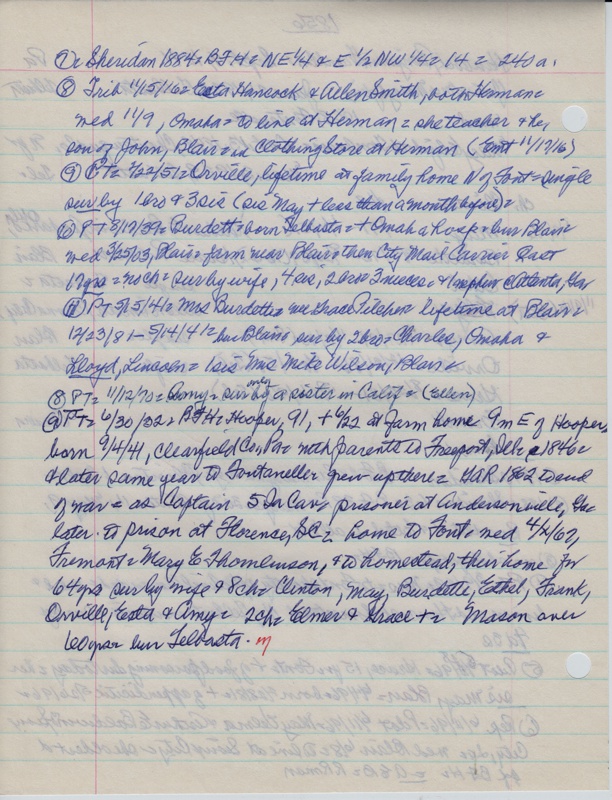 ⑦ = Sheridan 1884 = BFH = NE 1/4 & E 1/2 NW 1/4 = 14 = 240 a.
⑧ Trib 11/15/16 = Esta Hancock & Allen Smith, both Herman =
wed 11/9, Omaha = to live at Herman = she teacher & he,
son of John, Blair = in Clothing Store at Herman (Ent 11/17/16)
⑨ PT = 3/22/51 = Orville, lifetime at family home N of Font = single
sur by 1 bro & 3 sis (sis May + less than a month before) =
⑩ PT 8/17/39 = Burdett = born Telbasta = + Omaha Hosp = bur Blair
wed 9/25/03, Blair = farm near Blair = then City Mail Carrier past
17 yrs = no ch = sur by wife, 4 sis, 2 bro 3 nieces & 1 nephew Atlanta, Ga
⑪ PT 5/15/41 = Mrs Burdett = nee Grace Pilcher lifetime at Blair =
12/23/81 - 5/14/41 = bur Blair, sur by 2 bro = Charles, Omaha &
Lloyd, Lincoln = 1 sis Mrs Mike Wilson, Blair
⑧ PT = 11/12/70 = Amy = sur only by a sister in Calif = (Ellen)
⑨ PT = 6/30/32 = BFH = Hooper, 91, + 6/22 at farm home 9 m E of Hooper,
born 9/4/41, Clearfield Co, Pa = with parents to Freeport, Ill = 1846 =
& later same year to Fontanelle = grew up there = GAR 1862 to end
of war = as Captain 5 Ia Cav = prisoner at Andersonville, Ga
later to prison at Florence, SC = home to Font = wed 4/4/67,
Fremont = Mary E Thomlinson, & to homestead, their home for
64 yrs sur by wife & 8 ch = Clinton, May, Burdette, Ethel, Frank,
Orville, Esta & Amy = 2 ch = Elmer & Grace + = Mason over
60 yrs = bur Telbasta. m